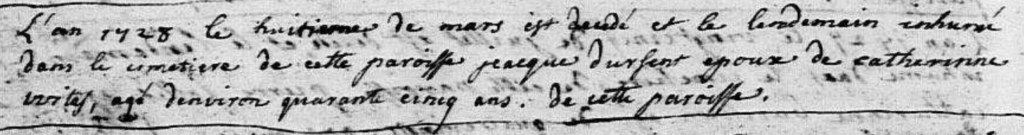 L'an 1728 le huitieme de mars est decedé et le lendemain inhumé
dans le cimetiere de cette paroisse jeacque dursent epoux de catheririne
vorles, agé denviron quarante cinq ans. de cette paroisse.